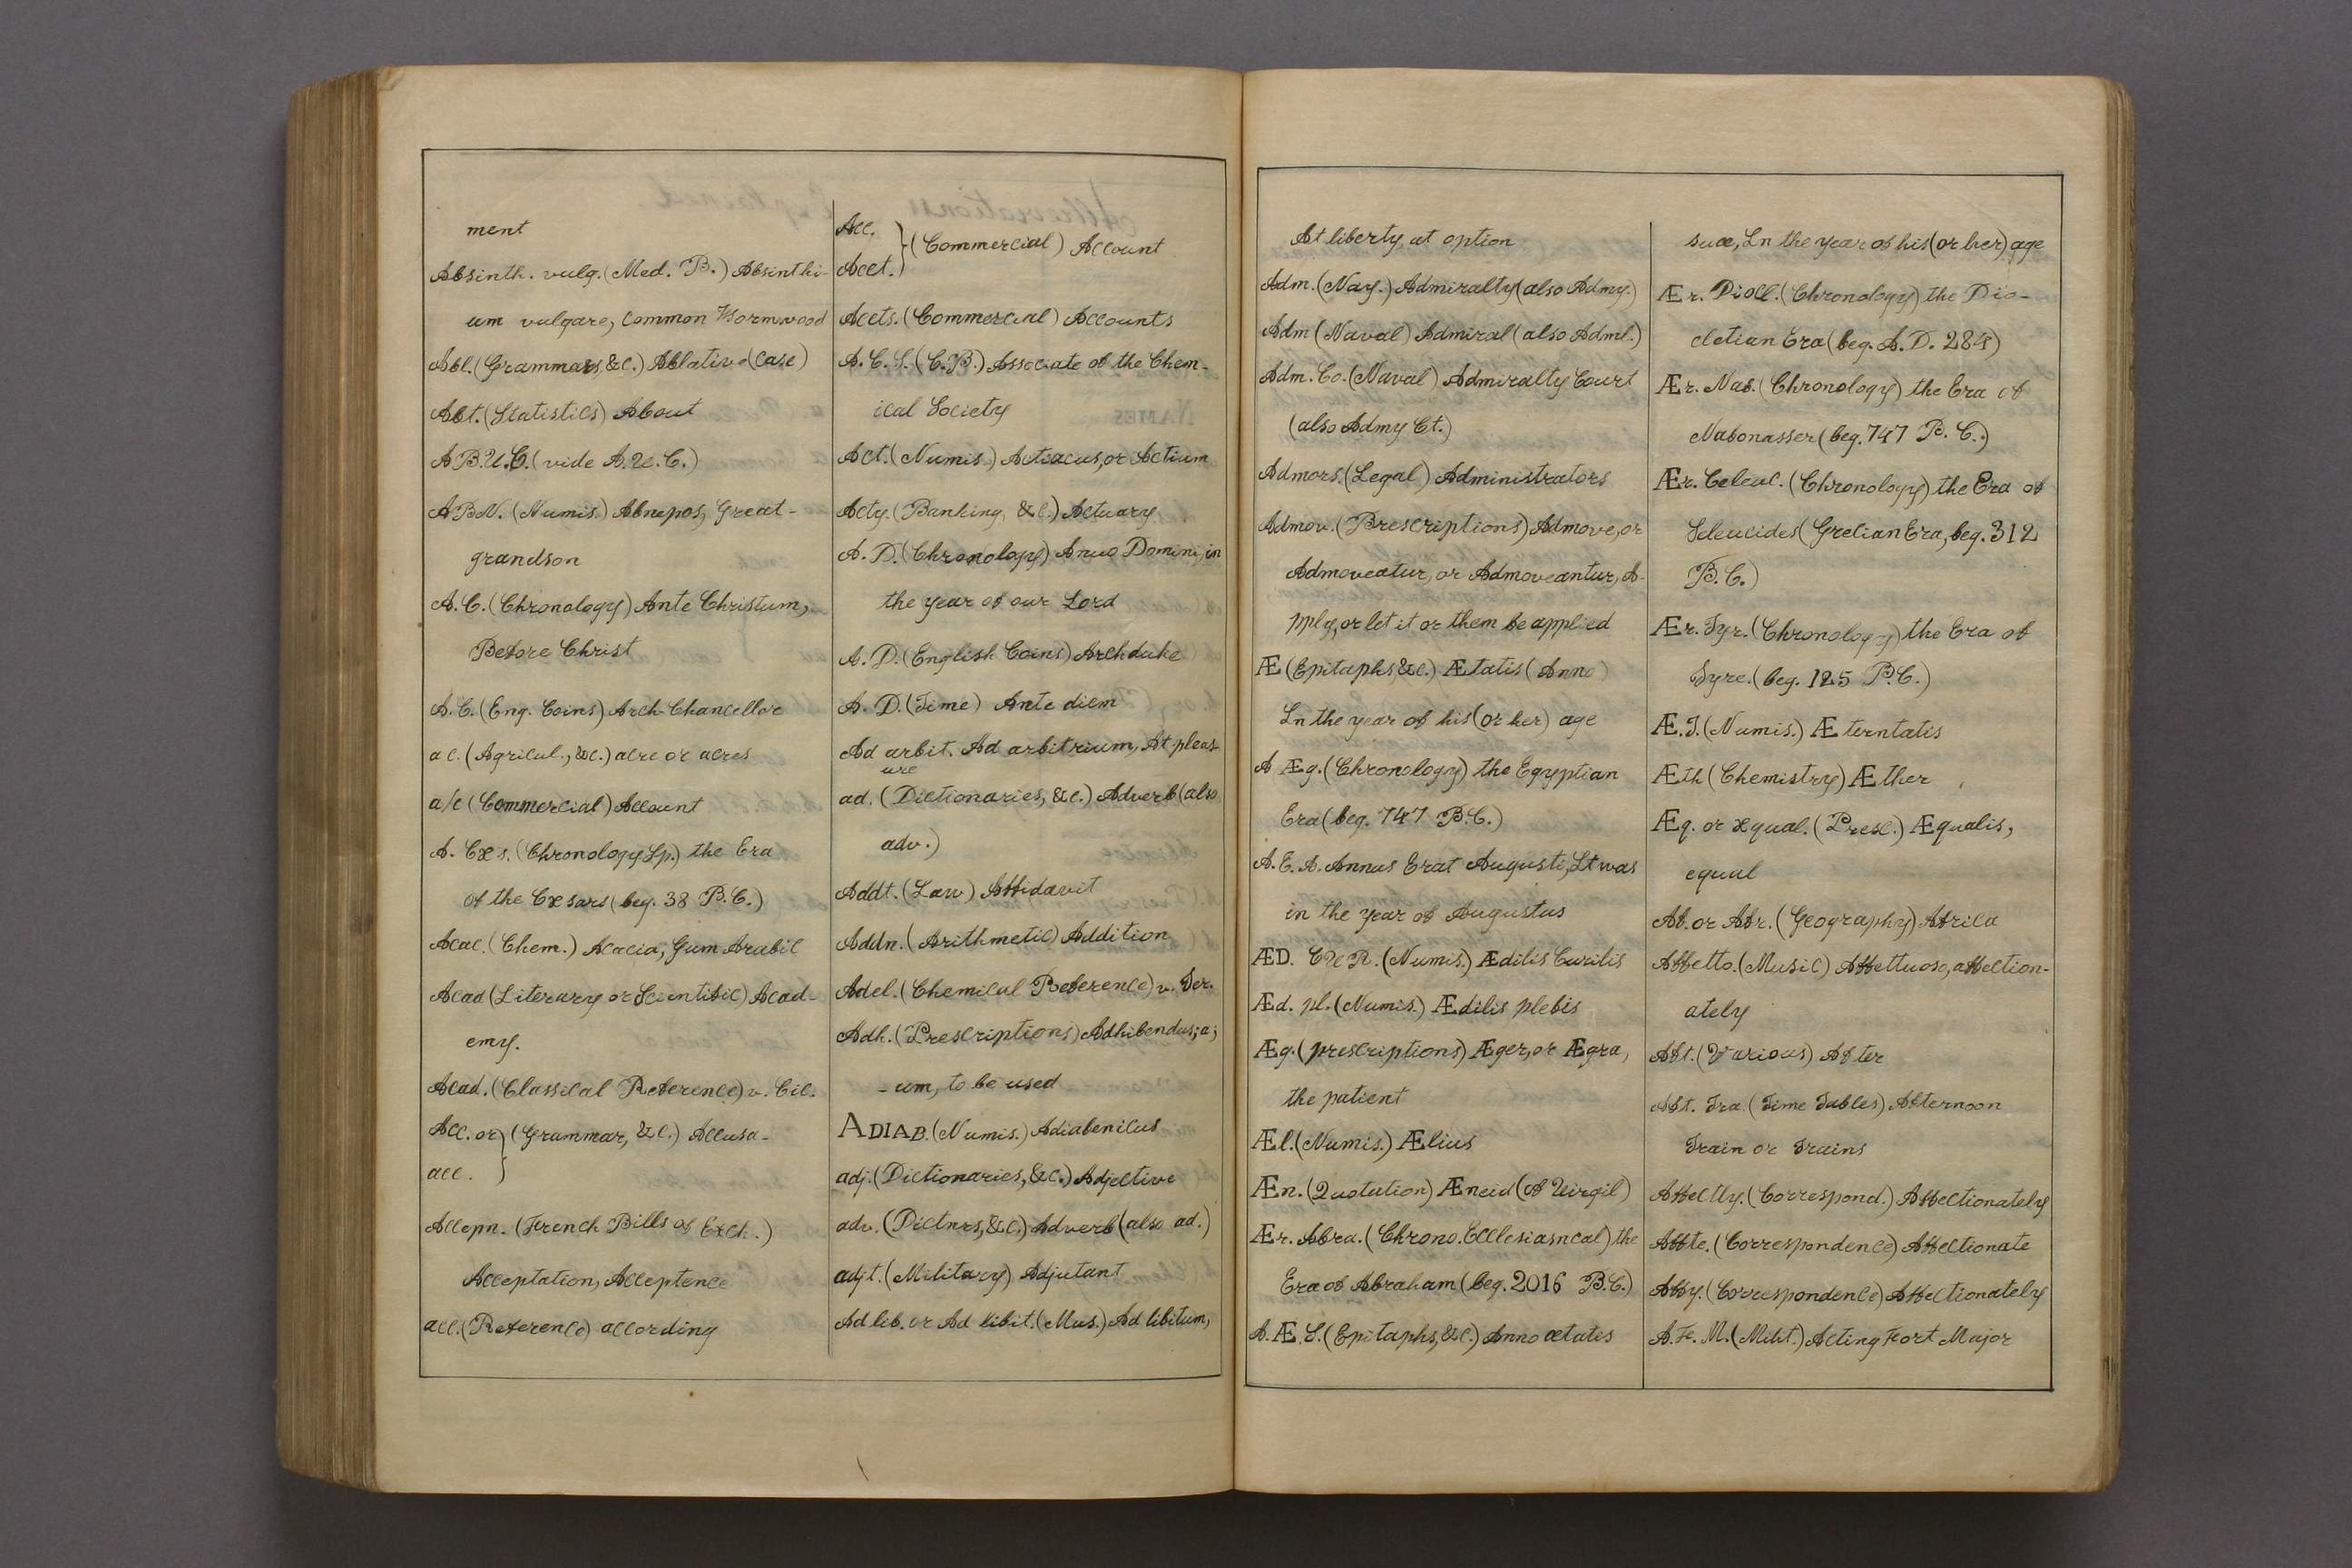 ment
Absinth. vulg. (Med. B.) Absinthi-
um vulgare, Common Wormwood
Abl. (Grammars, &c.) Ablative (Case)
Abt. (Statistics) About
A B. U. C. (vide A. U. C.)
A B N. (Numis.) Abnepos, Great-
grandson
A. C. (Chronology) Ante Christum,
Before Christ
A. C. (Eng. Coins) Arch-Chancellor
ac. (Agricul., &c.) acre or acres
a/c (Commercial) Account
A. Cæs. (Chronology Sp.) the Era
of the Cæsars (beg. 38 B. C.)
Acac. (Chem.) Acacia, Gum Arabic
Acad (Literary or Scientific) Acad-
emy.
Acad. (Classical Reference) v. Cic.
Acc. or } (Grammar, &c.) Accusa-
acc. }
Accepn. (French Bills of Exch.)
Acceptation, Acceptence
acc. (Reference) according
Acc. } (Commercial) Account
Acct. }
Accts. (Commercial) Accounts
A. C. S. (C. B.) Associate of the Chem-
ical Society
Act. (Numis.) Actiacus, or Actium
Acty. (Banking, &c.) Actuary
A. D. (Chronology) Anno Domini, in
the year of our Lord
A. D. (English Coins) Archduke
A. D. (Time) Ante diem
Ad arbit. Ad arbitrium, At pleas-
ure
ad. (Dictionaries, &c.) Adverb (also
adv.)
Addt. (Law) Affidavit
Addn. (Arithmetic) Addition
Adel. (Chemical Reference) v. Ter.
Adh. (Prescriptions) Adhibendus; a;
- um, to be used
ADIAB. (Numis.) Adiabenicus
adj. (Dictionaries, &c.) Adjective
adv. (Dictnrs, &c.) Adverb (also ad.)
adjt. (Military) Adjutant
Ad lib. or Ad libit. (Mus.) Ad libitum,
At liberty, at option
Adm. (Nav.) Admiralty (also Admy.)
Adm (Naval) Admiral (also Adml.)
Adm. Co. (Naval) Admiralty Court
(also Admy Ct.)
Admors. (Legal) Administrators
Admov. (Prescriptions) Admove, or
Admoveatur, or Admoveantur, A-
pply, or let it or them be applied
Æ (Epitaphs &c.) Ætatis (Anno)
In the year of his (or her) age
A Æg. (Chronology) the Egyptian
Era (beg. 747 B. C.)
A. E. A. Annus Erat Augusti, It was
in the year of Augustus
ÆD. CUR. (Numis.) Ædilis Curilis
Æd. pl. (Numis.) Ædilis plebis
Æg. (prescriptions) Æger, or Ægra,
the patient
Æl. (Numis.) Ælius
Æn. (Quotution) Æneid (of Virgil)
Ær. Abra. (Chrono. Ecclesiasncal) the
Era of Abraham (beg. 2016 B. C.)
A. Æ. S. (Epitaphs, &c.) Anno ætatis
suæ, In the year of his (or her) age
Ær. Diocl. (Chronology) the Dio-
cletian Era (beg. A. D. 284)
Ær. Nab. (Chronology) the Era of
Nabonasser (beg. 747 B. C.)
Ær. Celeuc. (Chronology) the Era of
Seleucides (Grecian Era, beg. 312
B. C.)
Ær. Tyr. (Chronology) the Era of
Tyre. (beg. 125 B. C.)
Æ. T. (Numis.) Æterntatis
Æth (Chemistry) Æther
Æq. or æqual. (Presc.) Æqualis,
equal
Af. or Afr. (Geography) Africa
Affetto. (Music) Affettuoso, affection-
ately
Aft. (Various) After
Aft. Tra. (Time Tables) Afternoon
Train or Trains
Affectly. (Correspond.) Affectionately
Affte. (Correspondence) Affectionate
Affy. (Correspondence) Affectionately
A. F. M. (Milit.) Acting Fort Major